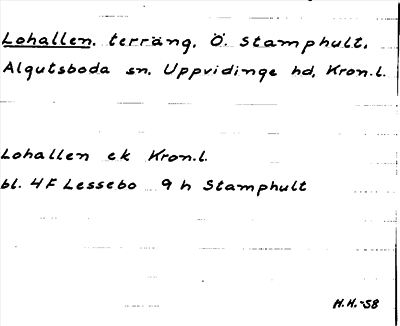 Lohallen, terräng, Ö. Stamphult,
Algutsboda sn. Uppvidinge hd, Kron.l.
Lohallen ek Kron.l.
bl. 4F Lessebo 9 h Stamphult
M.H.-58